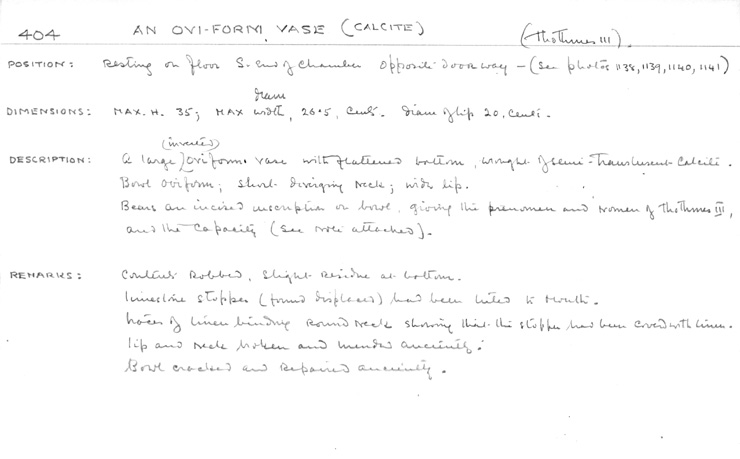 404 AN OVI-FORM VASE (CALCITE) (Thothmes III).
POSITION: Resting on floor S. end of Chamber opposite doorway – (See photos 1138, 1139, 1140, 1141)
diam
DIMENSIONS: MAX. H. 35; MAX width, 26.5, Cents. Diam of lip 20, Cents.
(inverted)
DESCRIPTION: A large oviform vase with flattened bottom, wrought of semi-translucent calcite.
Bowl oviform; short diverging neck; wide lip.
Bears an incised inscription on bowl, giving the prenomen and nomen of Thothmes III,
and the capacity (see note attached).
REMARKS: Contents robbed, slight residue at bottom.
limestone stopper (found displaced) had been luted to mouth.
traces of linen binding round neck showing that the stopper had been covered with linen.
lip and neck broken and mended anciently.
Bowl cracked and repaired anciently.